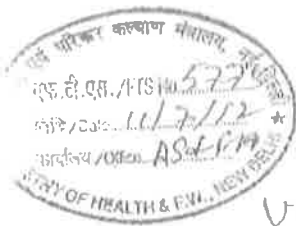 एवं परिवार कल्याण मंत्रालय, नई दिल्ली
एफ.टी.एस./FTS No. 577
तारीख/Date 11/7/112
कार्यालय/Office AS&FA
MINISTRY OF HEALTH & F.W., NEW DELHI